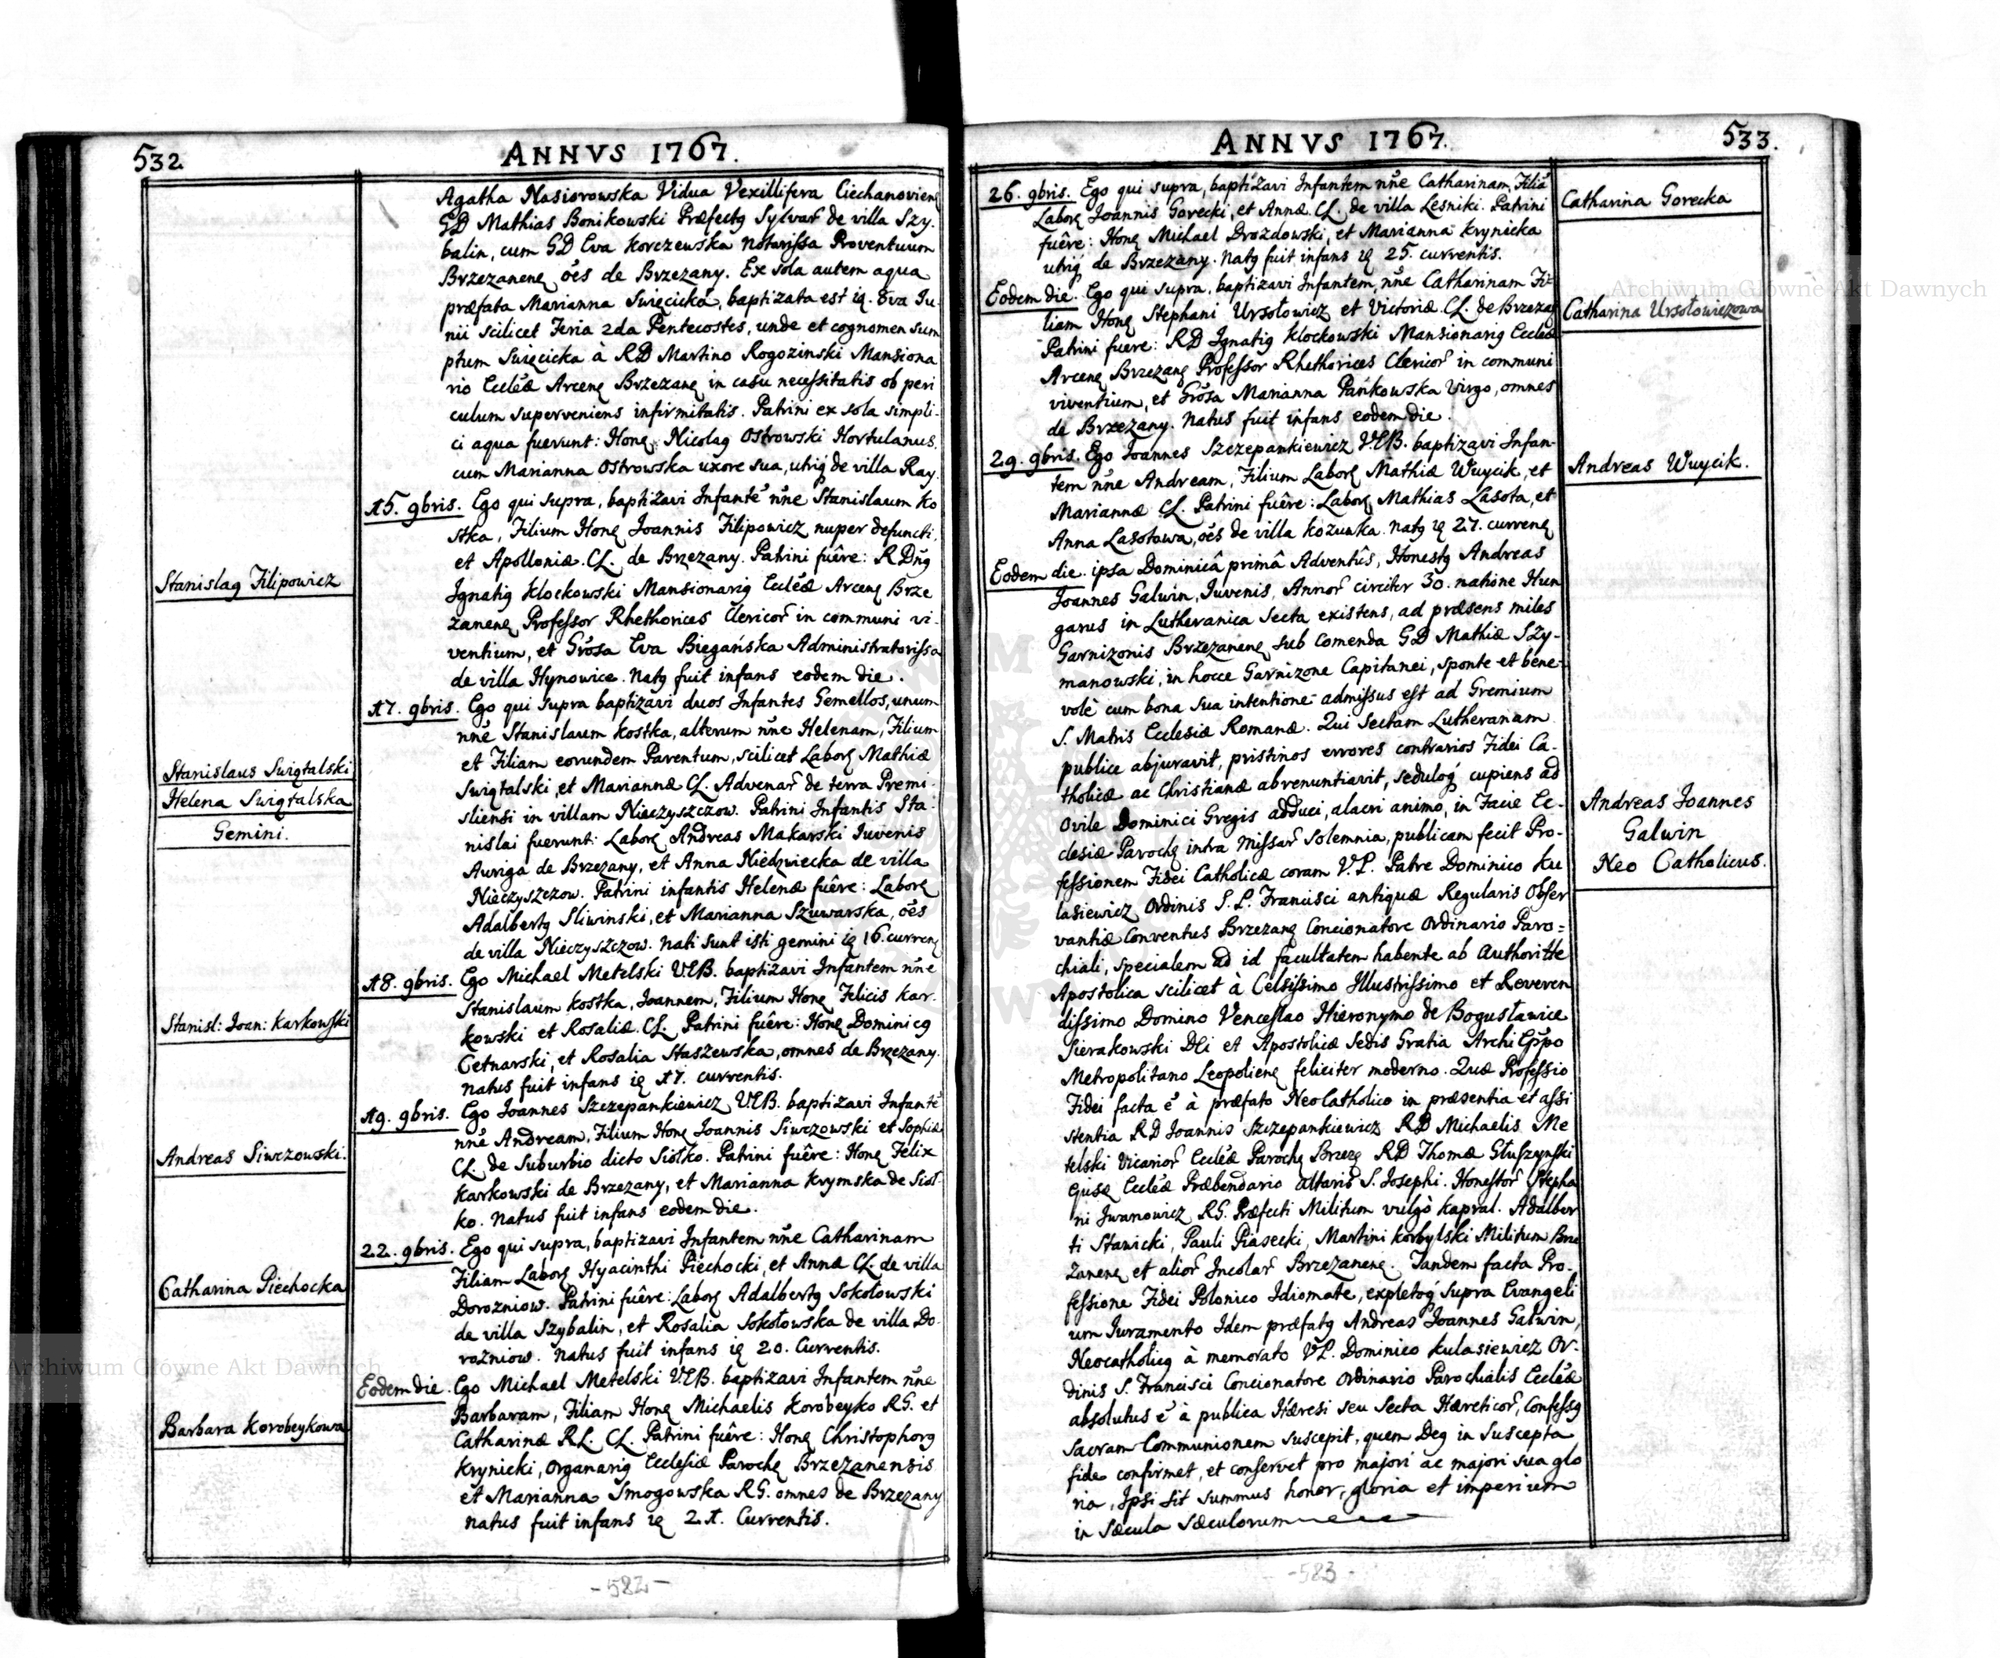 532
ANNVS 1767.
Agatha Nasiorowska Vidua Vexillifera Ciechanoviens
GD Mathias Bonikowski Præfectꝯ Sylvar̃ de villa Szy-
balin, cum GD Eva Korczewska Notarissa Proventuum
Brzezanenę o͂es de Brzezany. Ex sola autem aqua
præfata Marianna Swięcicka, baptizata est ię. 8va Iu-
nii scilicet Feria 2da Pentecostes, unde et cognomen sum
ptum Swięcicka à RD Martino Rogozinski Mansiona
rio Eccl̃æ Arcenę Brzezanę in casu necessitatis ob peri
culum superveniens infirmitatis. Patrini ex sola simpli-
ci aqua fuerunt: Honę Nicolaꝯ Ostrowski Hortulanus
cum Marianna Ostrowska uxore sua, utriq́ de villa Ray.
15. 9bris. Ego qui supra, baptizavi Infante͂ n͂ne Stanislaum Ko
stka, Filium Honę Joannis Filipowicz nuper defuncti,
et Apolloniæ. CL. de Brzezany. Patrini fuêre: R Dn͂ꝯ
Stanislaꝯ Filipowicz
Ignatiꝯ Klockowski Mansionariꝯ Eccl̃æ Arcenę Brze
zanenę Professor Rhethorices Clericor̃ in communi vi-
ventium, et Gr̃osa Eva Biegańska Administratorissa
de villa Hynowice. Natꝯ fuit infans eodem die.
17. 9bris. Ego qui supra baptizavi duos Infantes Gemellos, unum
n͂ne Stanislaum Kostka, alterum n͂ne Helenam, Filium
et Filiam eorundem Parentum, scilicet Laborę Mathiæ
Stanislaus Swiątalski
Swiątalski, et Mariannæ CL. Advenar̃ de terra Premi-
Helena Swiątalska
sliensi in villam Nieczyszczow. Patrini Infantis Sta-
Gemini.
nislai fuerunt: Laborę Andreas Makarski Iuvenis
Auriga de Brzezany, et Anna Niedzwiecka de villa
Nieczyszczow. Patrini infantis Helenæ fuêre: Laborę
Adalbertꝯ Sliwinski, et Marianna Szuwarska, o͂es
de villa Nieczyszczow. Nati sunt isti gemini ię 16. currenę
18. 9bris. Ego Michael Metelski VEB. baptizavi Infantem n͂ne
Stanislaum Kostka, Joannem, Filium Honę Felicis Kar-
Stanisl: Joan: Karkowski
kowski et Rosaliæ. CL. Patrini fuêre: Honę Dominicꝯ
Cetnarski, et Rosalia Staszewska, omnes de Brzezany.
Natus fuit infans ię 17. currentis.
19. 9bris. Ego Joannes Szczepankiewicz VEB. baptizavi Infante͂
n͂ne Andream, Filium Honę Joannis Siwczowski et Sophiæ
Andreas Siwczowski.
CL. de Suburbio dicto Siołko. Patrini fuêre: Honę Felix
Karkowski de Brzezany, et Marianna Krymska de Sioł-
ko. Natus fuit infans eodem die.
22. 9bris. Ego qui supra, baptizavi Infantem n͂ne Catharinam
Catharina Piechocka
Filiam Laborę Hyacinthi Piechocki, et Annæ CL. de villa
Dorozniow. Patrini fuêre: Laborę Adalbertꝯ Sokołowski
de villa Szybalin, et Rosalia Sokołowska de villa Do-
rozniow. Natus fuit infans ię 20. Currentis.
Eodem die. Ego Michael Metelski VEB. baptizavi Infantem n͂ne
Barbara Korobeykowa
Barbaram, Filiam Honę Michaelis Korobeyko RG. et
Catharinæ RL. CL. Patrini fuêre: Honę Christophorꝯ
Krynicki, Organariꝯ Ecclesiæ Parochę Brzezanensis
et Marianna Smogowska RG. omnes de Brzezany
natus fuit infans ię 21. Currentis.
-582-
ANNVS 1767.
533.
26. 9bris. Ego qui supra, baptizavi Infantem n͂ne Catharinam, Filia͂
Catharina Gorecka
Laborę Joannis Gorecki, et Annæ. CL. de villa Lesniki. Patrini
fuêre: Honę Michael Drozdowski, et Marianna Krynicka
utriq́ de Brzezany. Natꝯ fuit infans ię 25. currentis.
Eodem die. Ego qui supra, baptizavi Infantem, n͂ne Catharinam Fi-
Catharina Ursołowiczowa
liam Honę Stephani Ursołowicz et Victoriæ. CL. de Brzezany
Patrini fuêre: RD Ignatiꝯ Klockowski Mansionariꝯ Eccl̃æ
Arcenę Brzezanę Professor Rhethorices Clericor̃ in communi
viventium, et Gr̃osa Marianna Pańkowska Virgo, omnes
de Brzezany. Natus fuit infans eodem die.
29. 9bris. Ego Joannes Szczepankiewicz VEB. baptizavi Infan-
Andreas Wuycik.
tem n͂ne Andream, Filium Laborę Mathiæ Wuycik, et
Mariannæ CL. Patrini fuêre: Laborę Mathias Lasota, et
Anna Lasotowa, o͂es de villa Kozuwka. Natꝯ ię 27. currenę
Eodem die. ipsa Dominicâ primâ Adventûs, Honestꝯ Andreas
Joannes Galwin, Iuvenis, Annor̃ circiter 30. natione Hun
garus in Lutheranica Secta existens, ad præsens miles
Garnizonis Brzezanenę sub Comenda GD Mathiæ Szy-
manowski, in hocce Garnizone Capitanei, sponte et bene-
volè cum bona sua intentione admissus est ad Gremium
S. Matris Ecclesiæ Romanæ. Qui Sectam Lutheranam
publice abjuravit, pristinos errores contrarios Fidei Ca-
tholicæ ac Christianæ abrenuntiavit, seduloq́ cupiens ad
Andreas Joannes
Galwin
Neo Catholicus.
Ovile Dominici Gregis adduci, alacri animo, in Facie Ec-
clesiæ Parochę intra Missar̃ Solemnia, publicam fecit Pro-
fessionem Fidei Catholicæ coram V.P. Patre Dominico Ku
lasiewicz Ordinis S.P. Francisci antiquæ Regularis Obser
vantiæ Conventus Brzezanę Concionatore Ordinario Paro=
chiali, specialem ad id facultatem habente ab Authoritte
Apostolica scilicet à Celsissimo Illustrissimo et Reveren
dissimo Domino Venceslao Hieronymo de Bogusławice
Sierakowski DEI et Apostolicæ Sedis Gratia Archi Ep͂po
Metropolitano Leopolienę feliciter moderno. Quæ Professio
Fidei facta e͂ à præfato NeoCatholico in præsentia et assi
stentia RD Joannis Szczepankiewicz RD Michaelis Me
telski Vicarior̃ Eccl̃æ Parochę Brzezę RD Thomæ Głuszynski
ejusę Eccl̃æ Præbendario altaris S. Josephi. Honestor̃ Stepha
ni Iwanowicz RG. Præfecti Militum vulgò kapral. Adalber
ti Stanicki, Pauli Piasecki, Martini Korbylski Militum Brze
zanenę et alior̃ Incolar̃ Brzezanenę. Tandem facta Pro-
fessione Fidei Polonico Idiomate, expletoq́ supra Evangeli
um Iuramento Idem præfatꝯ Andreas Joannes Galwin,
Neocatholicꝯ à memorato V.P. Dominico Kulasiewicz Or-
dinis S. Francisci Concionatore Ordinario Parochialis Eccl̃æ
absolutus e͂ à publica Hæresi seu Secta Hæreticor̃, Confessꝯ
sacram Communionem suscepit, quem Deꝯ in Suscepta
fide confirmet, et conservet pro majori ac majori sua glo
ria, Ipsi sit summus honor, gloria et imperium
in Sæcula Sæculorum
-583-
Archiwum Główne Akt Dawnych
Archiwum Główne Akt Dawnych